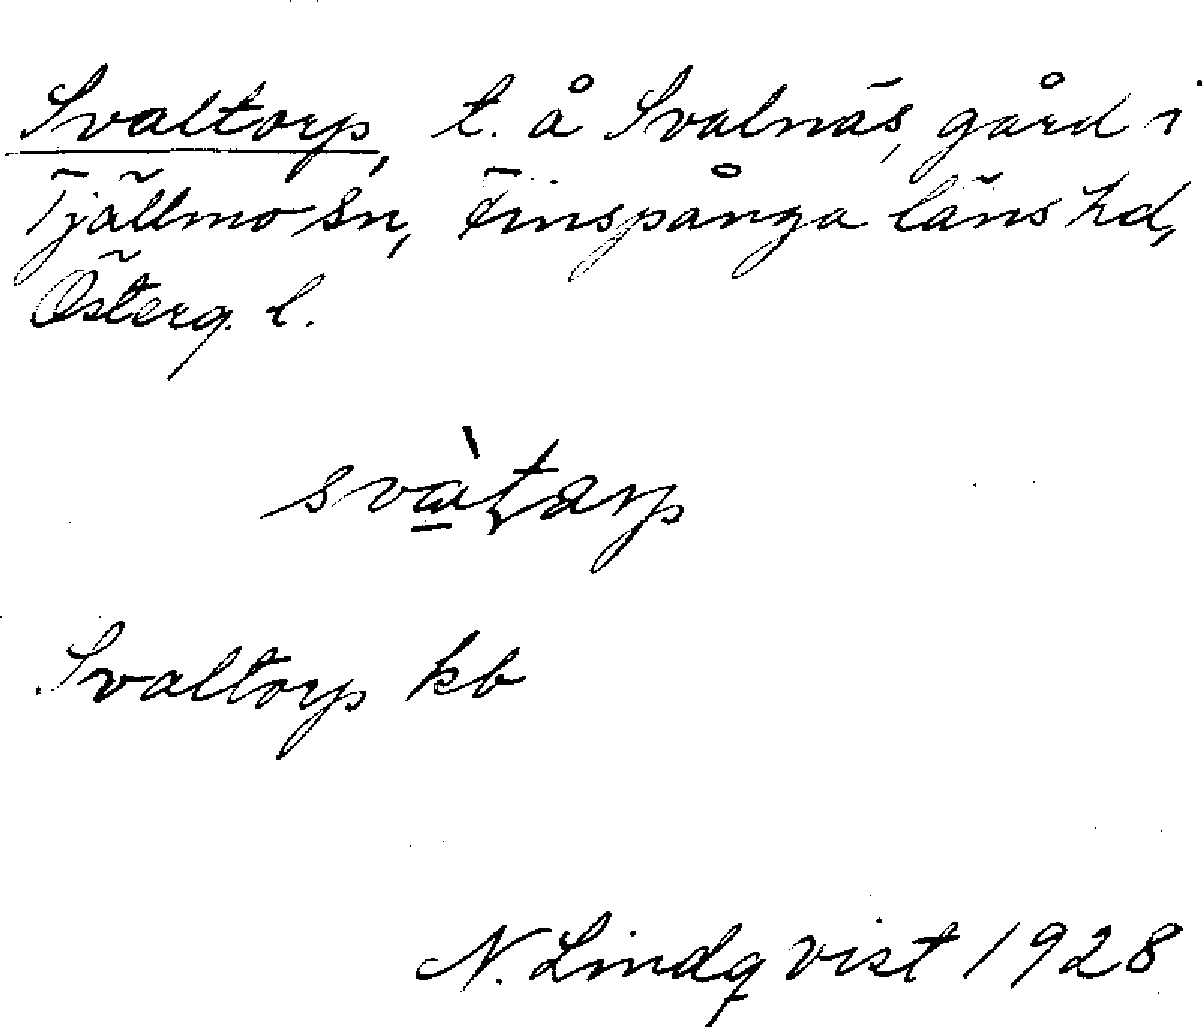 Svaltorp, t. å Svalnäs, gård i
Tjällmo sn, Finspånga läns hd,
Österg. l.
Svaltorp kb
N. Lindqvist 1928